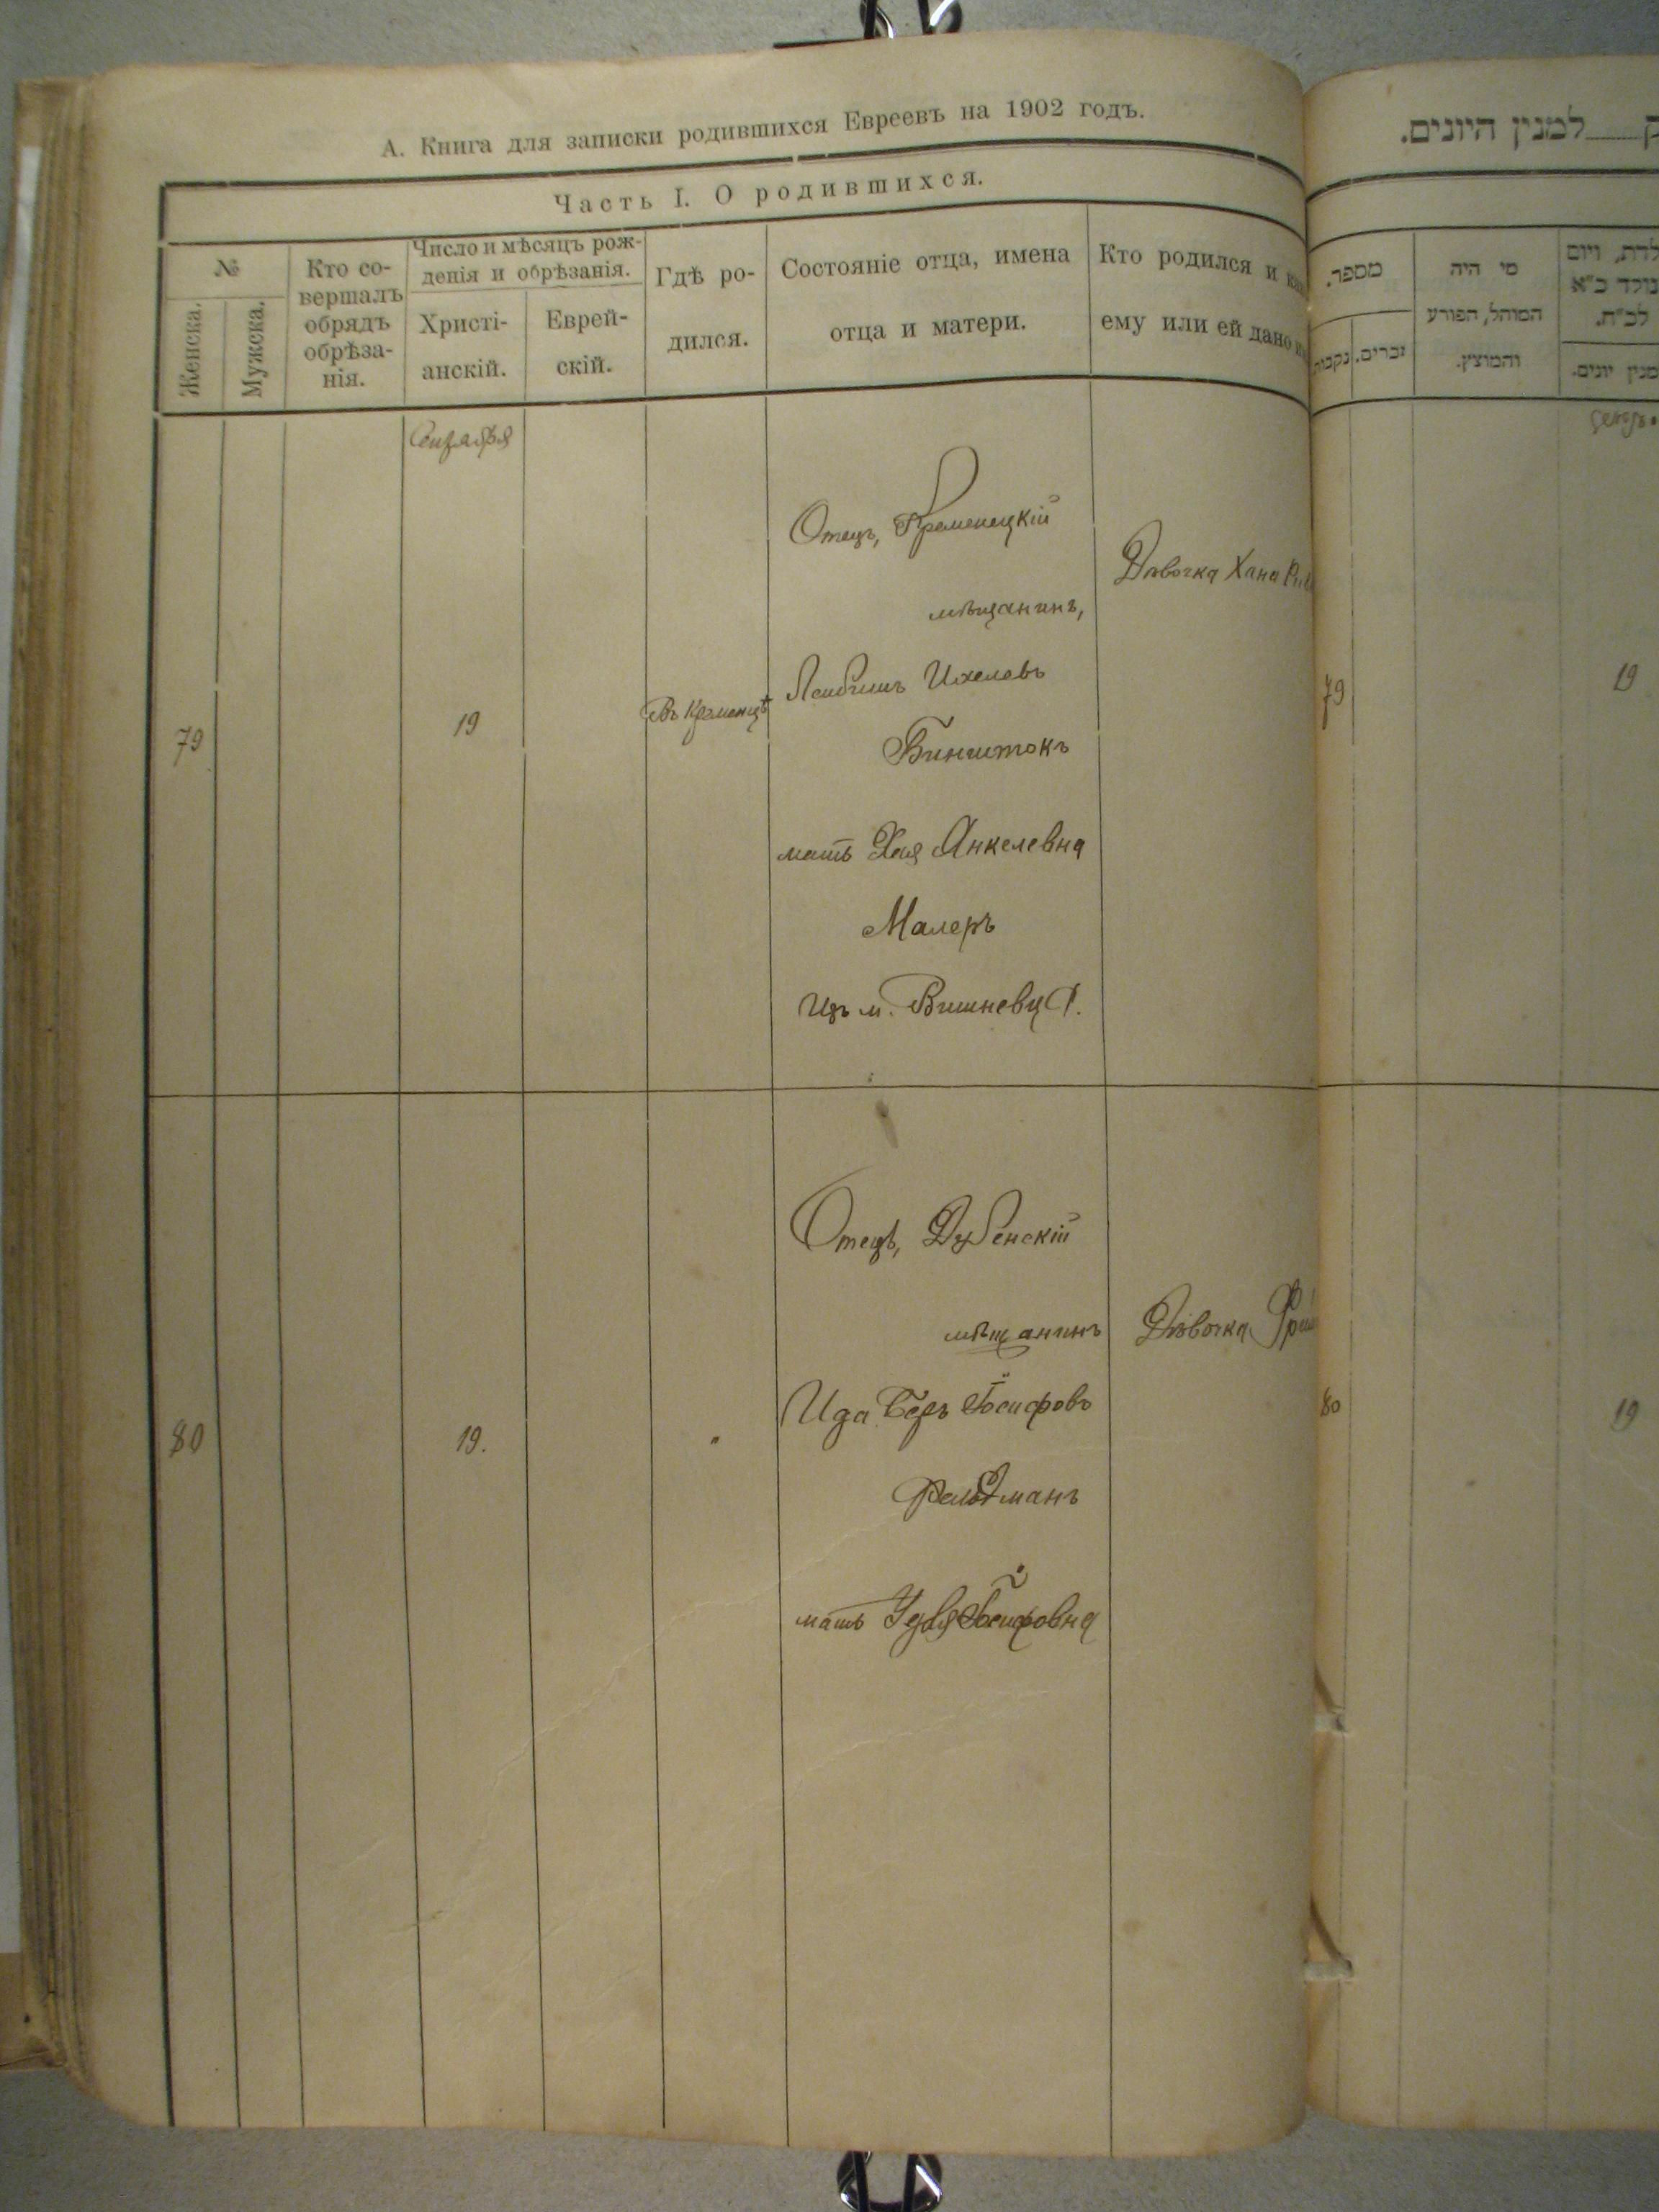 А. Книга для записки родившихся Евреевъ на 1902 годъ.
Часть I. О родившихся.
№
Женска.
Мужска.
Кто со-
вершалъ
обрядъ
обрѣза-
нія.
Число и мѣсяцъ рож-
денія и обрѣзанія.
Христі-
анскій.
Еврей-
скій.
Гдѣ ро-
дился.
Состояніе отца, имена
отца и матери.
Кто родился и
ему или ей дано
Сентября
79
19
Въ Кременцѣ
Отецъ, Кременецкій
мѣщанинъ,
Лейбишъ Ихелевъ
Бинштокъ
мать Хая Янкелевна
Малеръ
Изъ м. Вишневца.
Дѣвочка Хана
80
19.
"
Отецъ, Дубенскій
мѣщанинъ
Ида Беръ Іосифовъ
Фельдманъ
мать Удля Іосифовна
Дѣвочка
למנין היונים.
מספר.
זכרים.
מי היה
המוהל, הפורע
והמוצץ.
לדת, ויום
נולד ב"א
לב"ת.
מנין יונים.
79
19
80
19